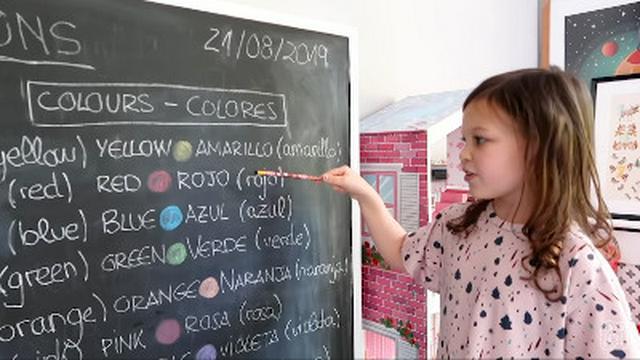 ONS
21/08/2019
COLOURS - COLORES
yellow) YELLOW AMARILLO (amarillo)
(red) RED ROJO (rojo)
(blue) BLUE AZUL (azul)
(green) GREEN VERDE (verde)
orange) ORANGE NARANJA (naranja)
PINK ROSA (rosa)
VIOLETA (violeta)